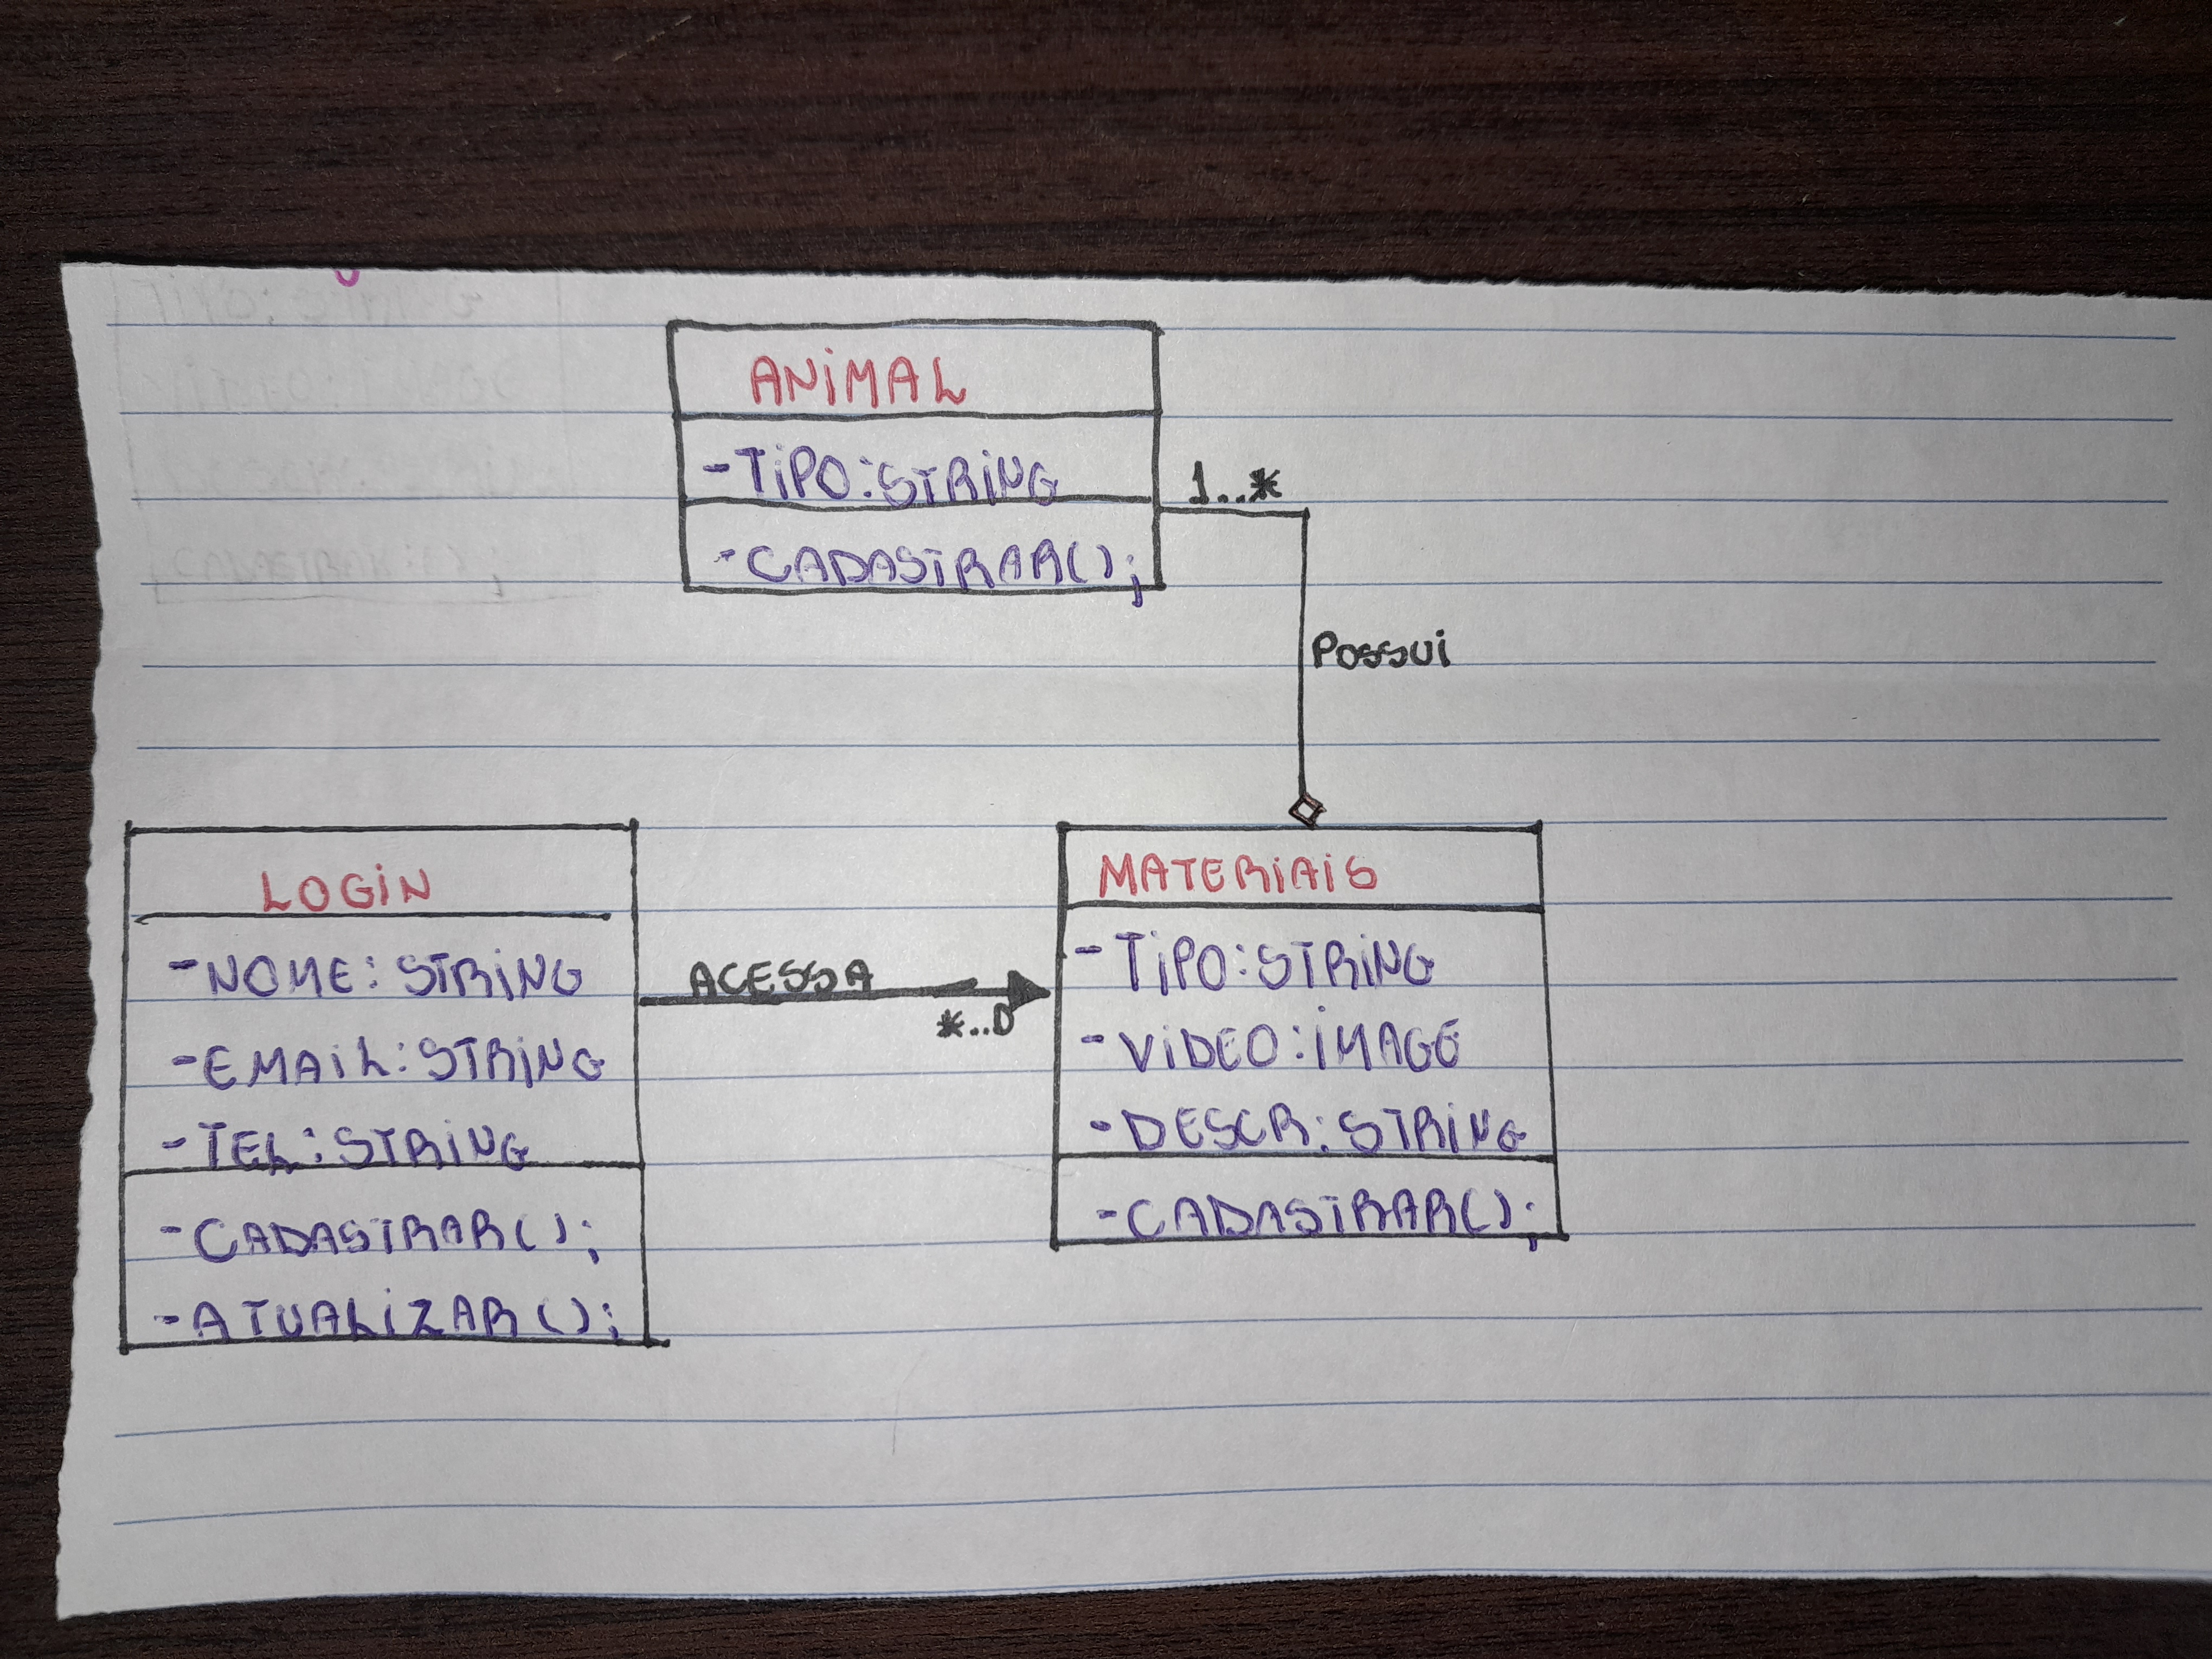 ANIMAL
-TIPO:STRING
-CADASTRAR();
1..*
POSSUI
LOGIN
-NOME:STRING
-EMAIL:STRING
-TEL:STRING
-CADASTRAR();
-ATUALIZAR();
ACESSA
*..0
MATERIAIS
-TIPO:STRING
-VIDEO:IMAGE
-DESCR:STRING
-CADASTRAR();